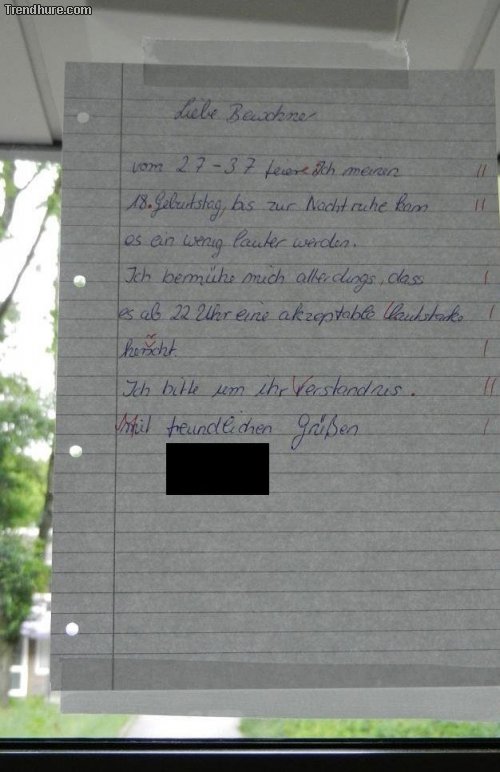 Trendhure.com
Liebe Bewohner
vom 27-37 feiere Ich meinen
18. Geburtstag, bis zur Nachtruhe kann
es ein wenig lauter werden.
Ich bermühe mich allerdings, dass
es ab 22 Uhr eine akzeptable Lautstärke
herscht.
Ich bitte um ihr Verständnis.
Mit freundlichen Grüßen